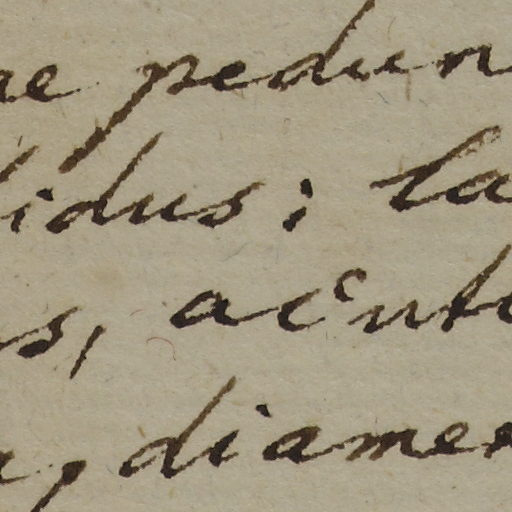 ae pedun
lidus; la
us, acut
a, diame